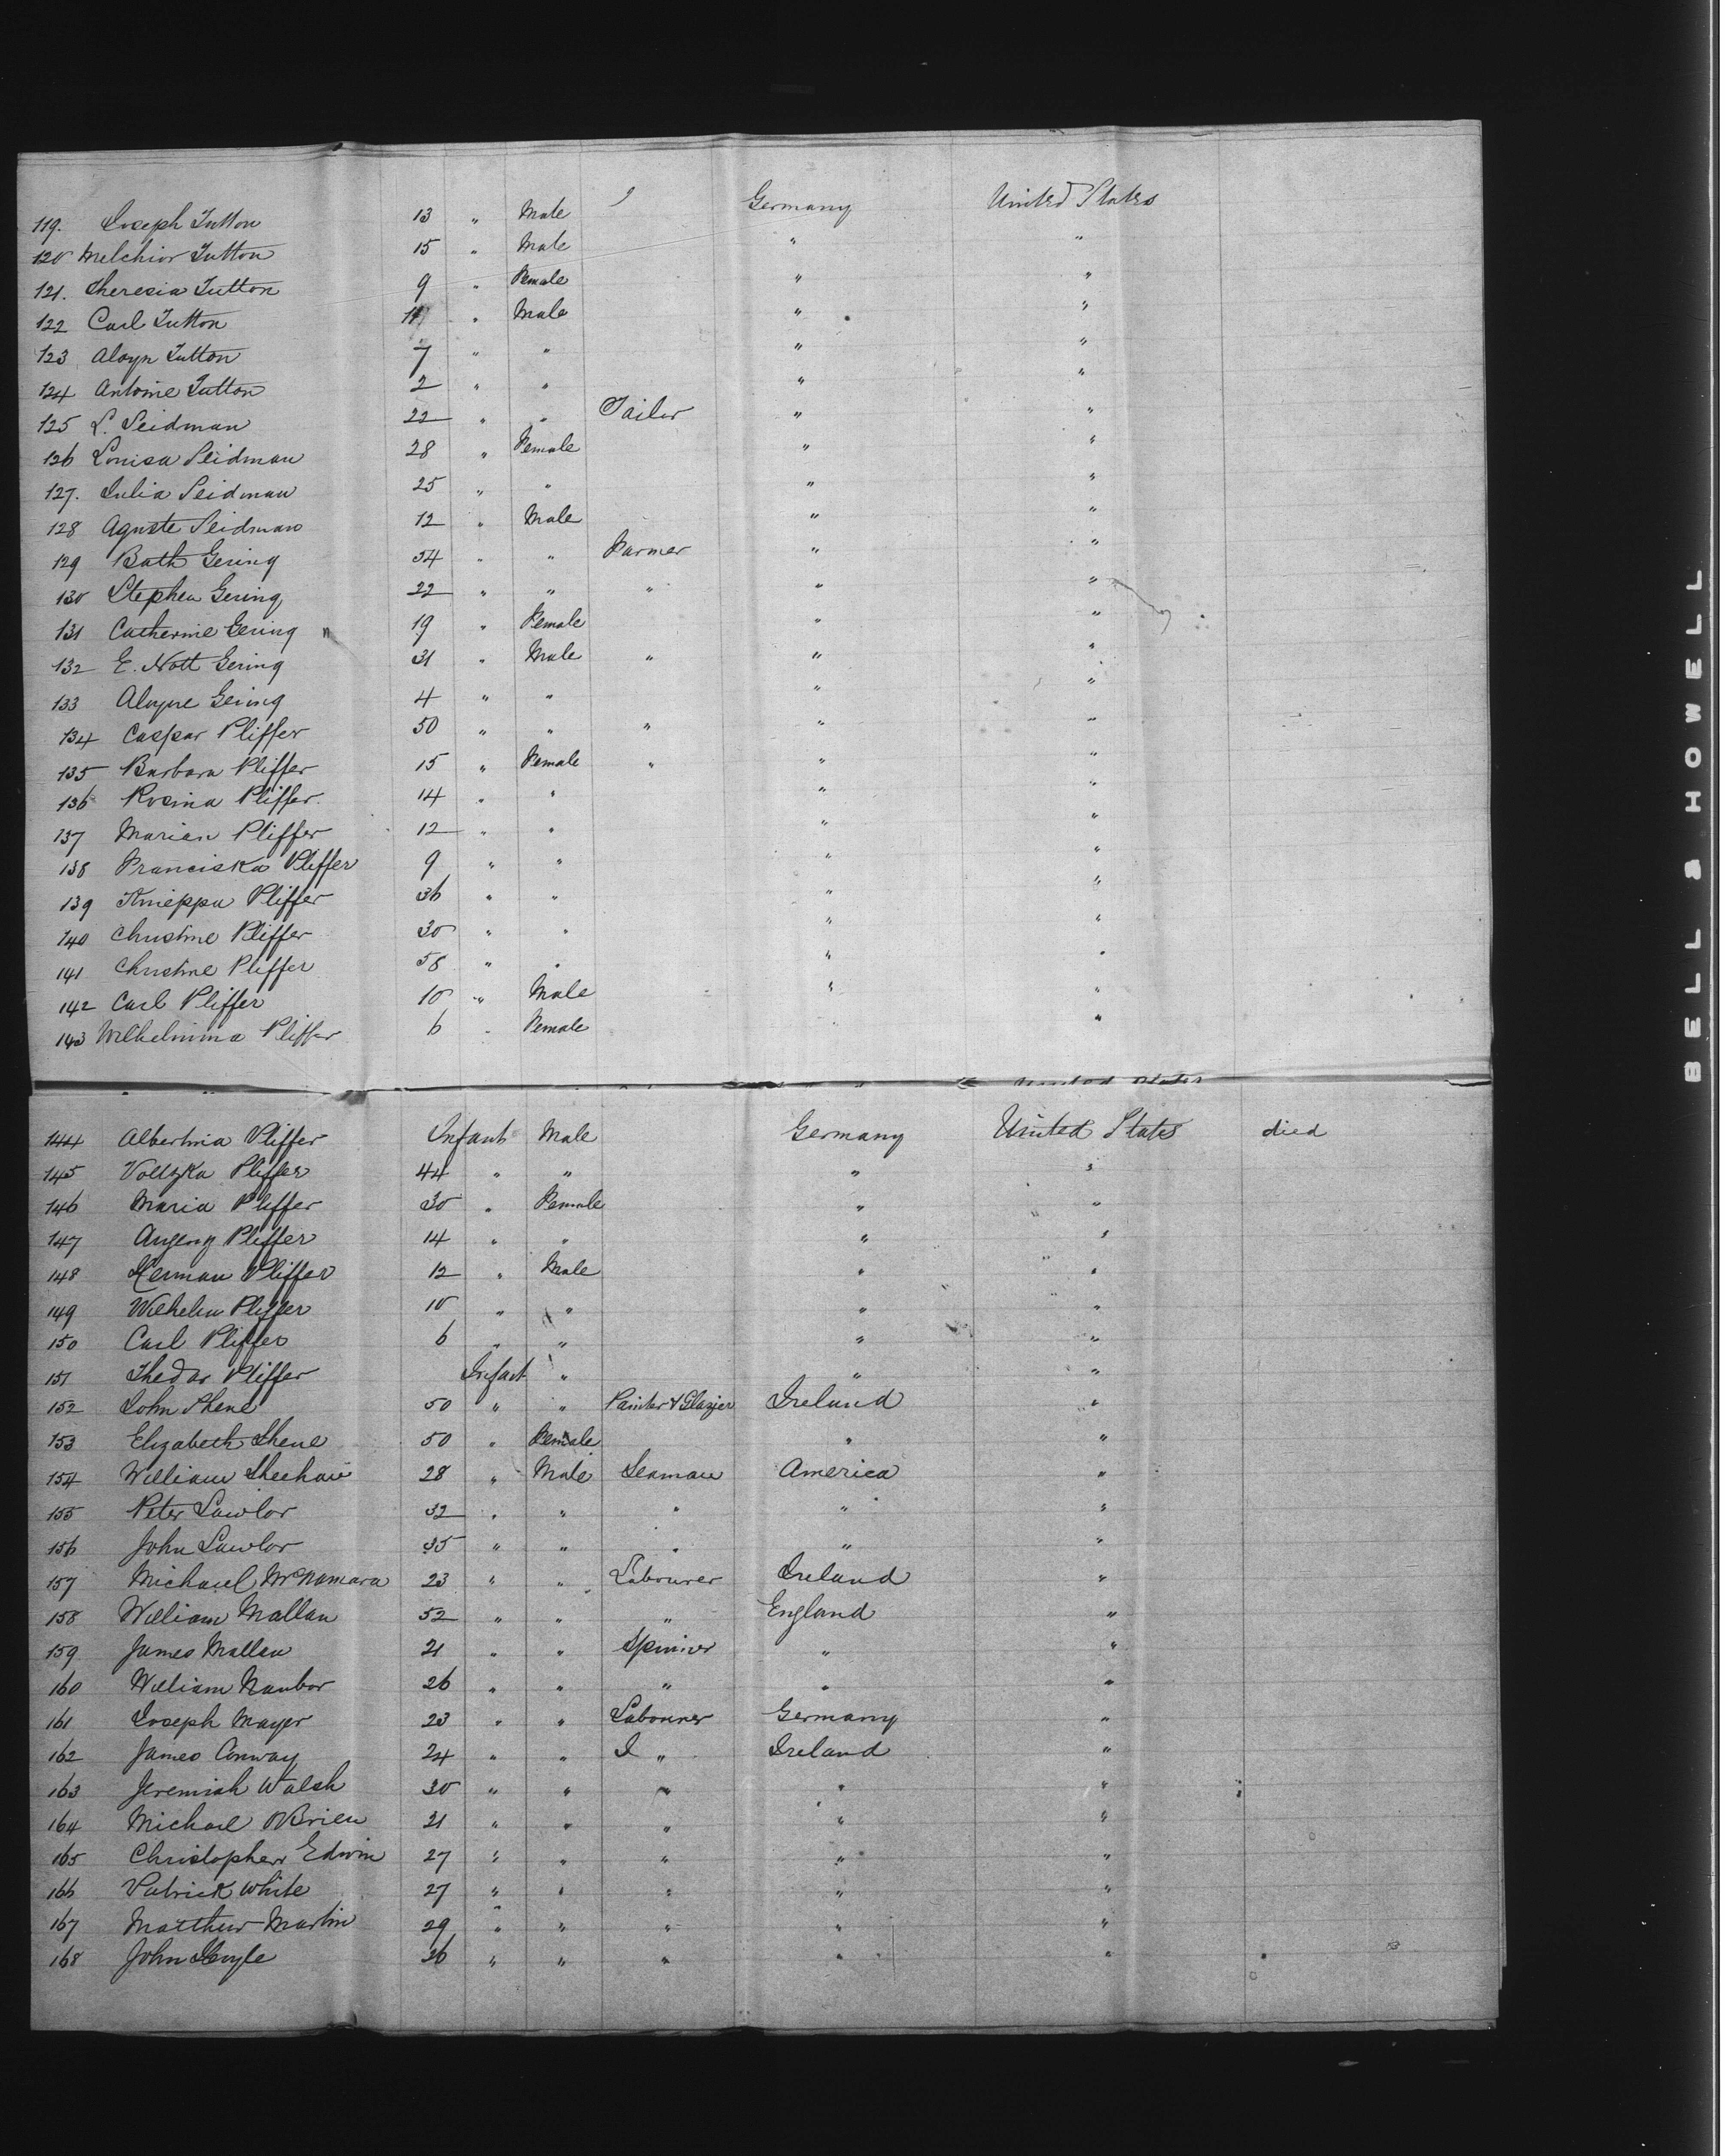 119. Joseph Tutton 13 " Male Germany United States
120 Melchior Tutton 15 " Male " "
121. Theresia Tutton 9 " Female " "
122 Carl Tutton " Male " "
123 Aloyn Tutton 7 " " " "
124 Antoine Tutton 2 " " " "
125 L. Seidman 22 " " Tailor " "
126 Louisa Seidman 28 " Female " "
127. Julia Seidman 25 " " " "
128 Aguste Seidman 12 " Male " "
129 Bath Gering 54 " " Farmer " "
130 Stephen Gering 22 " " " " "
131 Catherine Gering 19 " Female " "
132 E. Nott Gering 31 " Male " " "
133 Aloyne Gering 4 " " " "
134 Caspar Pliffer 50 " " " " "
135 Barbara Pliffer 15 " Female " " "
136 Rosina Pliffer 14 " " " "
137 Marian Pliffer 12 " " " "
138 Franciska Pliffer 9 " " " "
139 Knieppu Pliffer 36 " " " "
140 Christine Pliffer 30 " " " "
141 Christine Pliffer 58 " " " "
142 Carl Pliffer 10 " Male " "
143 Wilhelmina Pliffer 6 " Female "
144 Albertina Pliffer Infant Male Germany United States died
145 Voltzka Pliffer 44 " " " "
146 Maria Pliffer 30 " Female " "
147 Augeng Pliffer 14 " " " "
148 Herman Pliffer 12 " Male " "
149 Wilhelm Pliffer 10 " " " "
150 Carl Pliffer 6 " " " "
151 Thedor Pliffer Infant " " "
152 John Shene 50 " " Painter & Glazier Ireland "
153 Elizabeth Shene 50 " Female " "
154 William Sheehan 28 " Male Seaman America "
155 Peter Lawlor 32 " " " " "
156 John Lawlor 35 " " " " "
157 Michael McNamara 23 " " Labourer Ireland "
158 William Mallan 52 " " " England "
159 James Mallan 21 " " Spinner " "
160 William Naubor 26 " " " " "
161 Joseph Mayer 23 " " Labourer Germany "
162 James Conway 24 " " " Ireland "
163 Jeremiah Walsh 30 " " " " "
164 Michael OBrien 21 " " " " "
165 Christopher Edwin 27 " " " " "
166 Patrick White 27 " " " " "
167 Matthew Martin 29 " " " " "
168 John 26 " " " " "
BELL & HOWELL